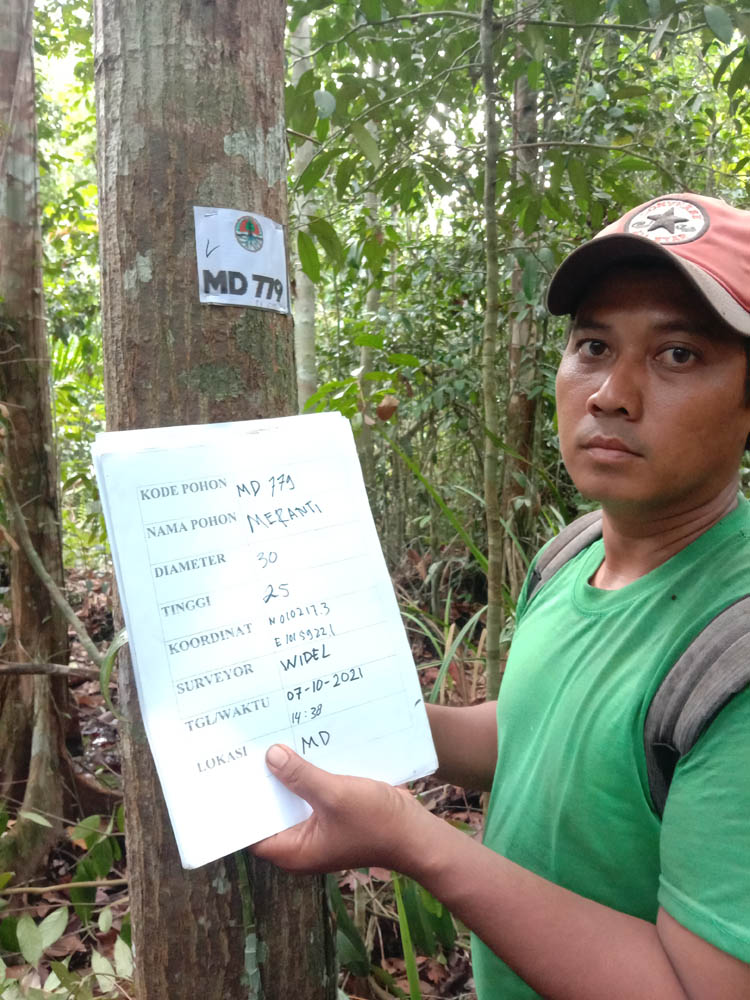 MD 779
KODE POHON MD 779
NAMA POHON MERANTI
DIAMETER 30
TINGGI 25
KOORDINAT N 010217.3
E 10159221
SURVEYOR WIDEL
TGL/WAKTU 07-10-2021
14:38
LOKASI MD